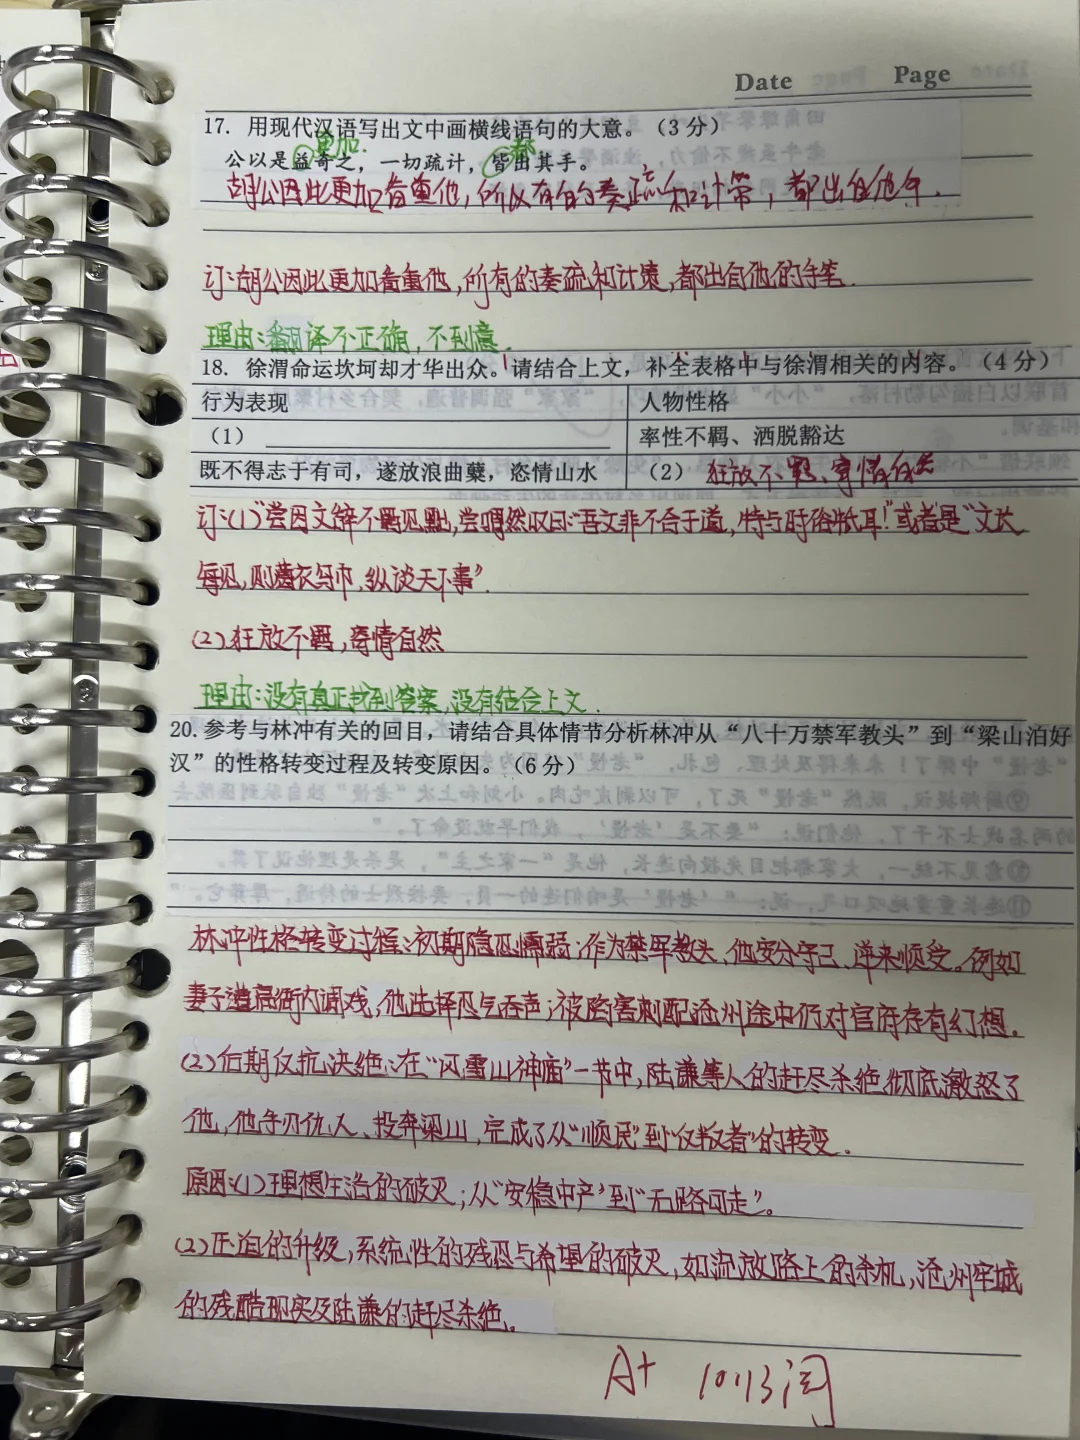 Date Page
17. 用现代汉语写出文中画横线语句的大意。（3 分）
更加. 都
公以是益奇之，一切疏计，皆出其手。
胡公因此更加看重他，所以有的奏疏和计策，都出自他手.
订:胡公因此更加看重他,所有的奏疏和计策,都出自他的手笔.
理由:翻译不正确,不到意.
18. 徐渭命运坎坷却才华出众。请结合上文，补全表格中与徐渭相关的内容。（4 分）
行为表现 人物性格
（1） 率性不羁、洒脱豁达
既不得志于有司，遂放浪曲蘖，恣情山水 （2）狂放不羁、寄情自然
订:(1)"尝因文辞不羁见黜,尝喟然叹曰:"吾文非不合于道,特与时俗牴耳!"或者是"文长
每见,则葛衣乌巾,纵谈天下事".
(2)狂放不羁,寄情自然
理由:没有真正找到答案,没有结合上文.
20.参考与林冲有关的回目，请结合具体情节分析林冲从“八十万禁军教头”到“梁山泊好
汉”的性格转变过程及转变原因。（6 分）
林冲性格转变过程:初期隐忍懦弱:作为禁军教头、他安分守己、逆来顺受。例如
妻子遭高衙内调戏,他选择忍气吞声;被陷害刺配沧州途中仍对官府存有幻想.
(2)后期反抗决绝:在"风雪山神庙"一节中,陆谦等人的赶尽杀绝彻底激怒了
他,他手刃仇人、投奔梁山,完成了从"顺民"到"反叛者"的转变.
原因:(1)理想生活的破灭;从"安稳中产"到"无路可走"。
(2)压迫的升级,系统性的残忍与希望的破灭,如流放路上的杀机,沧州牢城
的残酷现实及陆谦的赶尽杀绝.
A+ 10.13阅